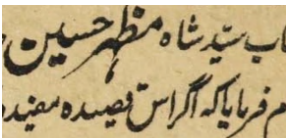 اب سید شاہ مظہر حسین
م فرمایا کہ اگر اس قصیدہ مفیدہ